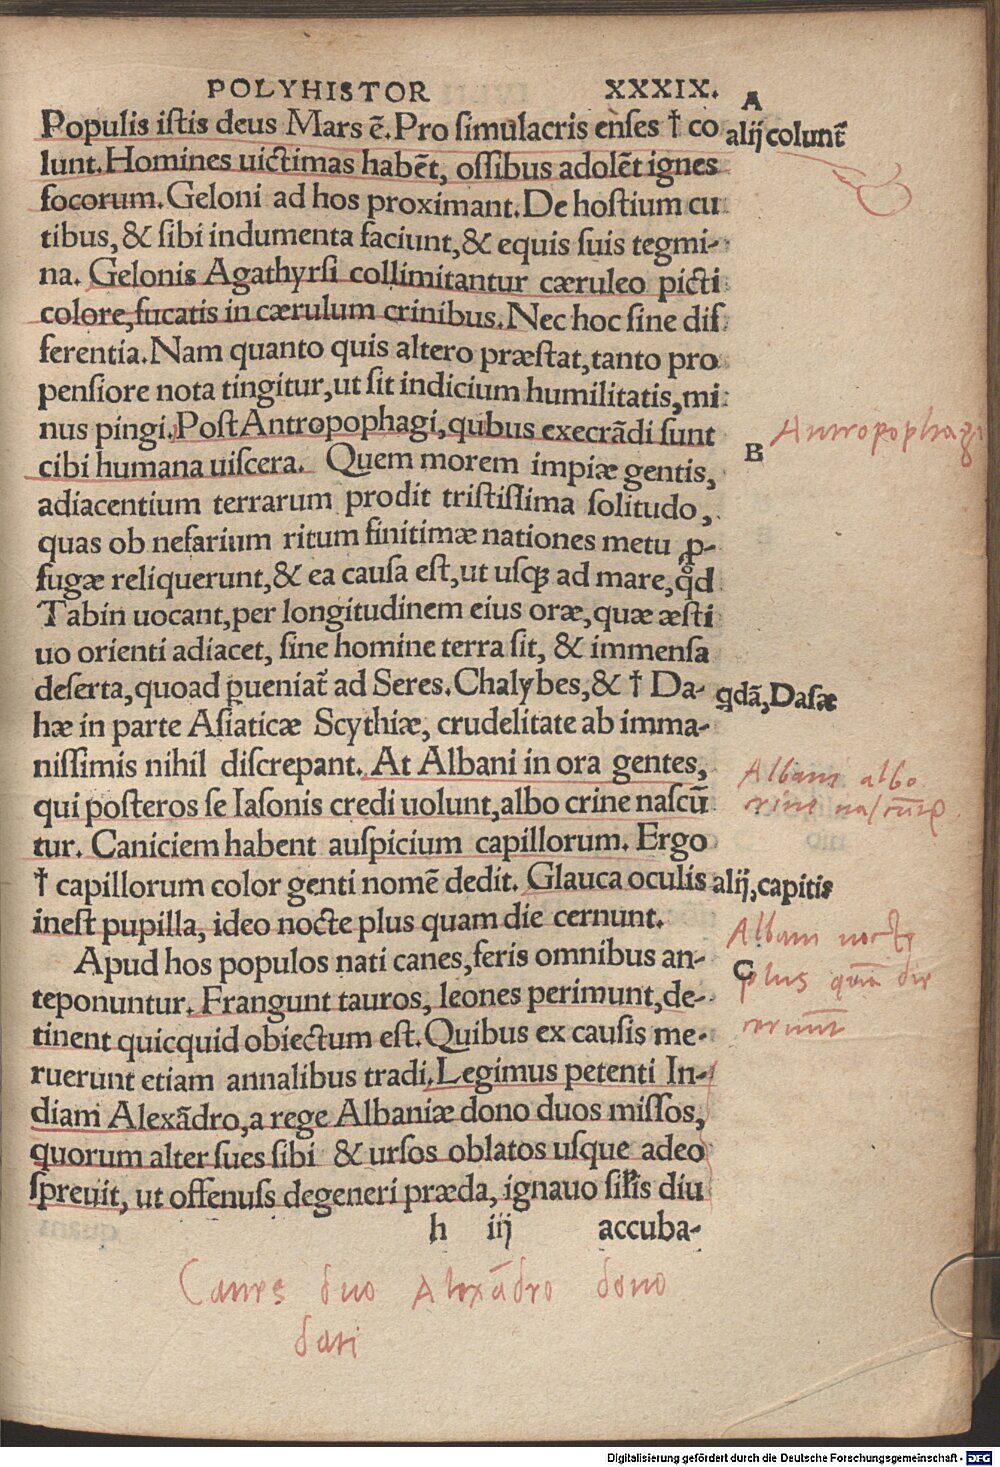 POLYHISTOR XXXIX.
A
Populis iſtis deus Mars ē. Pro ſimulacris enſes † co
alij colunt̄
lunt. Homines uictimas habēt, oſſibus adolēt ignes
focorum. Geloni ad hos proximant. De hoſtium cu
tibus, & ſibi indumenta faciunt, & equis ſuis tegmi-
na. Gelonis Agathyrſi collimitantur cæruleo picti
colore, fucatis in cærulum crinibus. Nec hoc ſine dif
ferentia. Nam quanto quis altero præſtat, tanto pro
penſiore nota tingitur, ut ſit indicium humilitatis, mi
nus pingi. Poſt Antropophagi, qubus execrādi ſunt
Antropophagi
B
cibi humana uiſcera. Quem morem impiæ gentis,
adiacentium terrarum prodit triſtiſſima ſolitudo,
quas ob nefarium ritum finitimæ nationes metu ꝓ-
fugæ reliquerunt, & ea cauſa eſt, ut uſqꝫ ad mare, qd̊
Tabin uocant, per longitudinem eius oræ, quæ æſti
uo orienti adiacet, ſine homine terra ſit, & immenſa
deſerta, quoad ꝑueniat̄ ad Seres. Chalybes, & † Da-
qdā, Daſæ
hæ in parte Aſiaticæ Scythiæ, crudelitate ab imma-
niſſimis nihil diſcrepant. At Albani in ora gentes,
Albani albo
qui poſteros ſe Iaſonis credi uolunt, albo crine naſcū
crine naſcūtꝛ
tur. Caniciem habent auſpicium capillorum. Ergo
† capillorum color genti nomē dedit. Glauca oculis
alij, capitis
ineſt pupilla, ideo nocte plus quam die cernunt.
Albani nocte
Apud hos populos nati canes, feris omnibus an-
C
plus quā die
teponuntur. Frangunt tauros, leones perimunt, de-
cernunt
tinent quicquid obiectum eſt. Quibus ex cauſis me-
ruerunt etiam annalibus tradi. Legimus petenti In-
diam Alexādro, a rege Albaniæ dono duos miſſos,
quorum alter ſues ſibi & urſos oblatos uſque adeo
ſpreuit, ut offenuſs degeneri præda, ignauo ſiłis diu
h iij accuba-
Canes duo Alexādro dono
dati
Digitalisierung gefördert durch die Deutsche Forschungsgemeinschaft - DFG